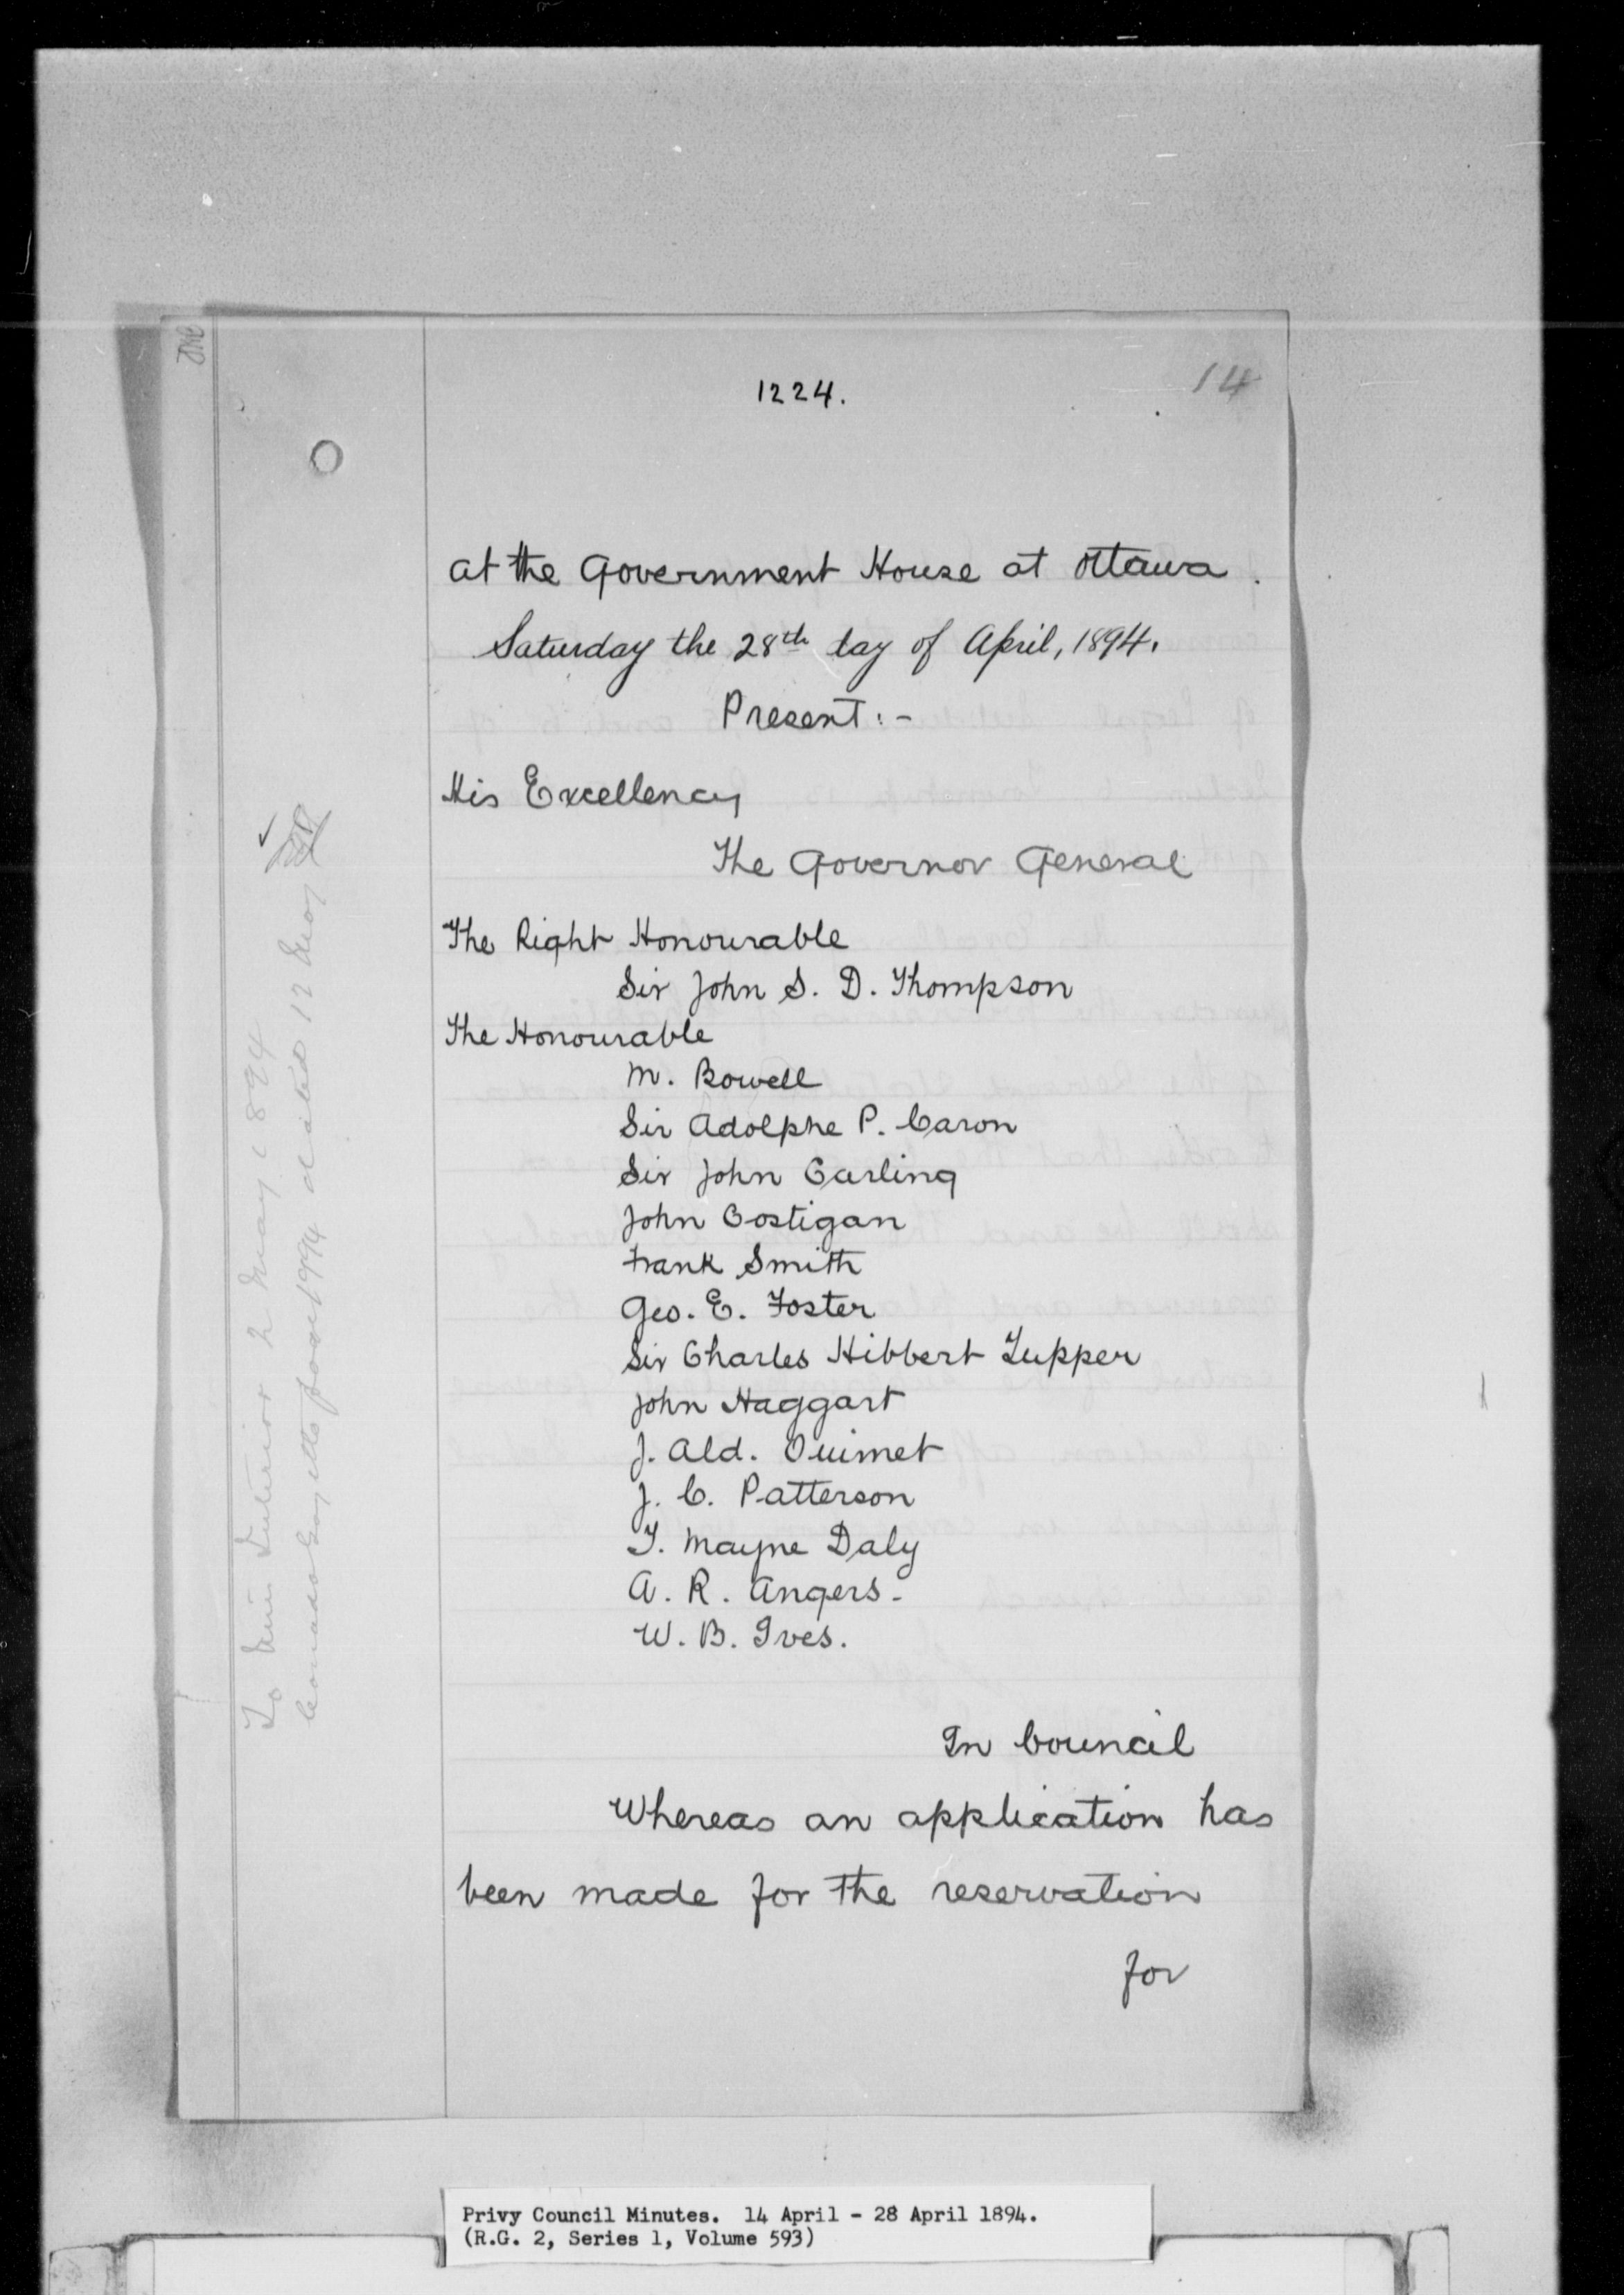 1224.
14
At the Government House at Ottawa.
Saturday the 28th day of April, 1894.
Present:-
His Excellency
The Governor General
The Right Honourable
Sir John S. D. Thompson
The Honourable
M. Bowell
Sir Adolphe P. Caron
Sir John Carling
John Costigan
Frank Smith
Geo. E. Foster
Sir Charles Hibbert Tupper
John Haggart
J. Ald. Ouimet
J. C. Patterson
T. Mayne Daly
A. R. Angers.
W. B. Ives.
In Council
Whereas an application has
been made for the reservation
for
To Min Interior 2 May 1894
Canada Gazette 12 May
Privy Council Minutes. 14 April - 28 April 1894.
(R.G. 2, Series 1, Volume 593)